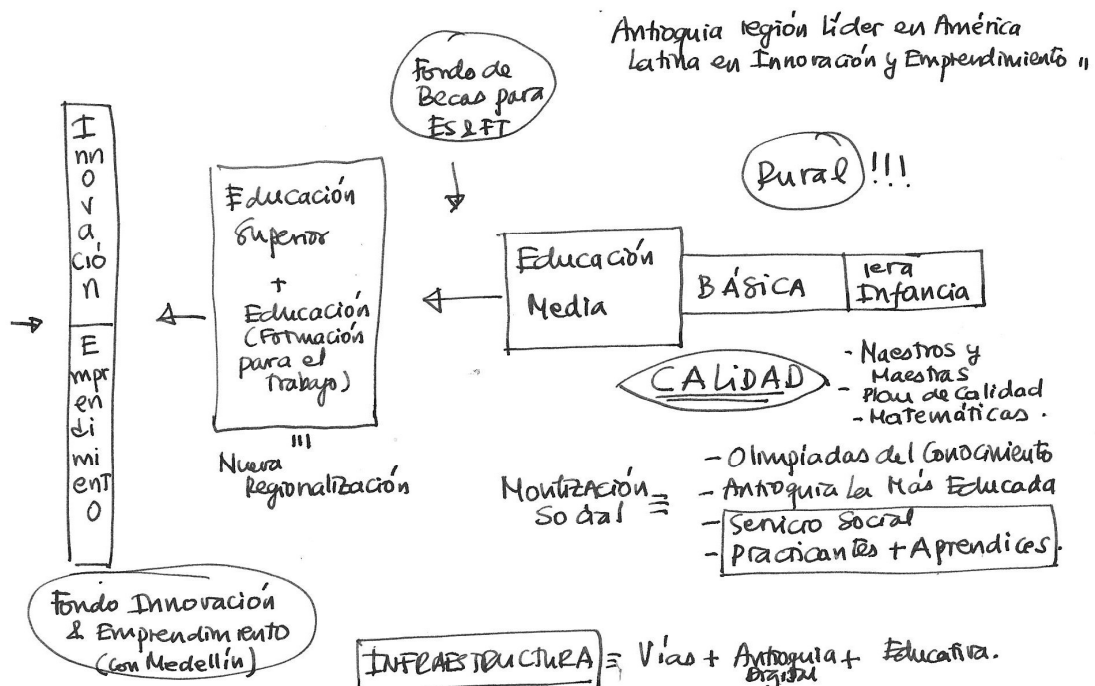 Antioquia región Líder en América
Latina en Innovación y Emprendimiento "
Fondo de
Becas para
ES & FT
Rural !!!
Innovación
Emprendimiento
Educación
Superior
+
Educación
(Formación
para el
trabajo)
Nueva
Regionalización
Educación
Media
BÁSICA
1era
Infancia
CALIDAD
- Maestros y
Maestras
- Plan de Calidad
- Matemáticas.
Movilización
Social =
- Olimpiadas del Conocimiento
- Antioquia La Más Educada
- Servicio Social
- Practicantes + Aprendices.
Fondo Innovación
& Emprendimiento
(con Medellín)
INFRAESTRUCTURA = Vías + Antioquia + Educativa.
Digital